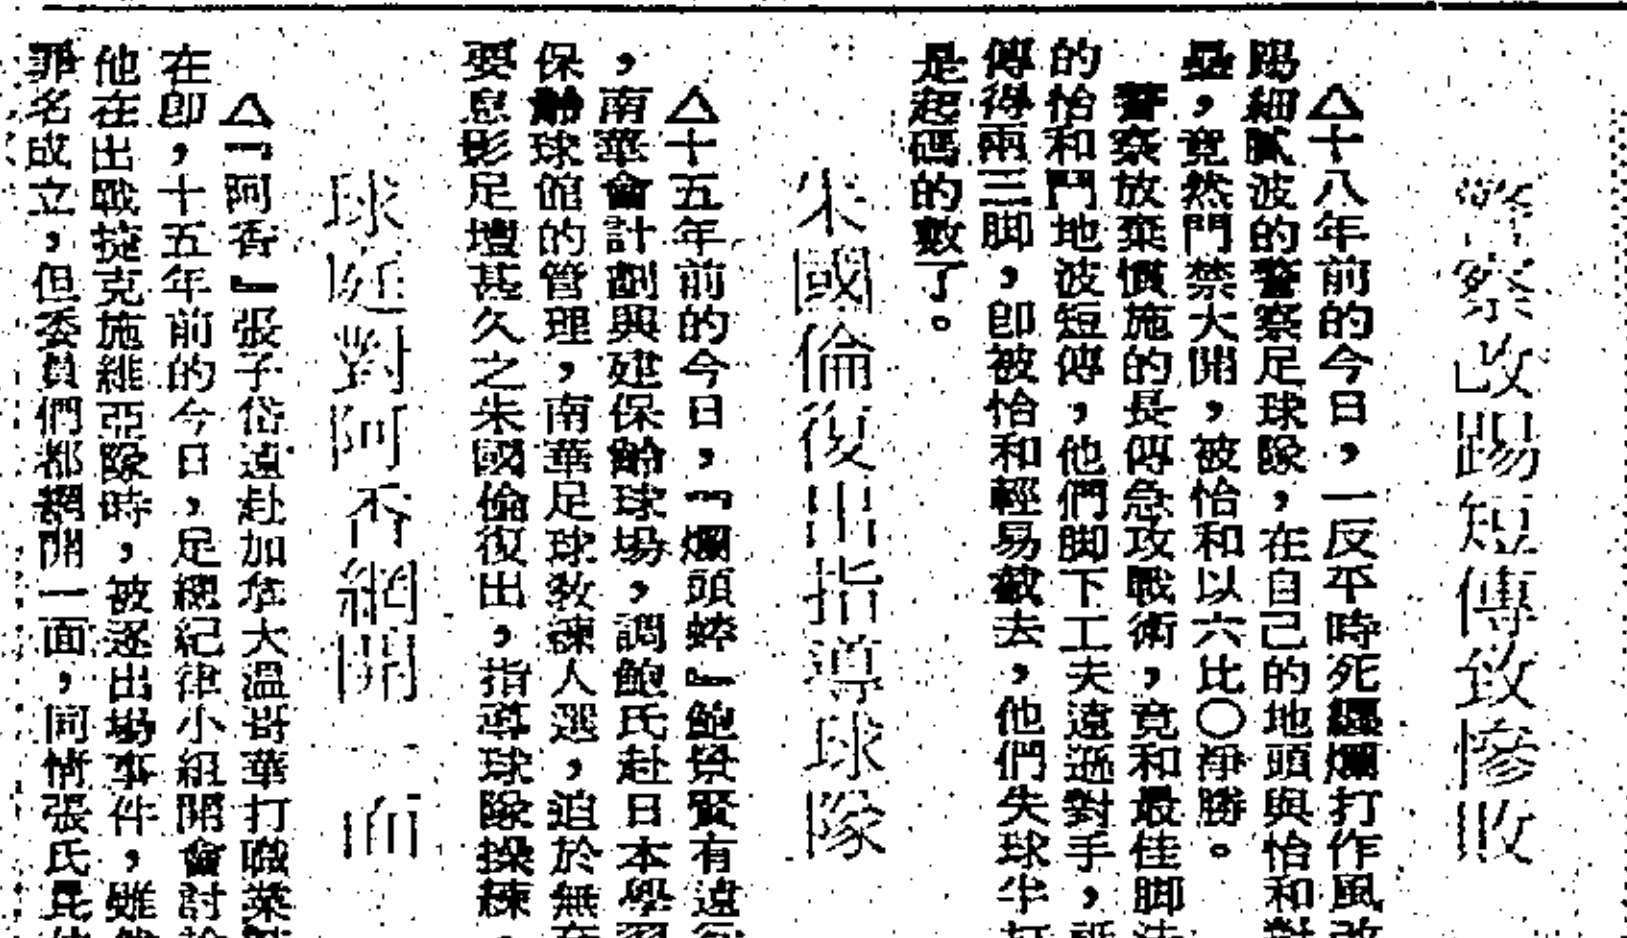 警察改踢短傳致慘敗
△十八年前的今日，一反平時死纏爛打作風改
踢細膩波的警察足球隊，在自己的地頭與怡和對
壘，竟然門禁大開，被怡和以六比〇淨勝。
警察放棄慣施的長傳急攻戰術，竟和最佳脚法
的怡和鬥地波短傳，他們脚下工夫遠遜對手，
傳得兩三脚，即被怡和輕易截去，他們失球半打
是起碼的數了。
朱國倫復出指導球隊
△十五年前的今日，『爛頭蟀』鮑景賢有遠
，南華會計劃興建保齡球場，調鮑氏赴日本學習
保齡球館的管理，南華足球教練人選，迫於無
要息影足壇甚久之朱國倫復出，指導球隊操練
球庭對阿香網開一面
△『阿香』張子岱遠赴加拿大溫哥華打職業
在即，十五年前的今日，足總紀律小組開會討論
他在出戰捷克施維亞隊時，被逐出場事件，雖
罪名成立，但委員們都網開一面，同情張氏